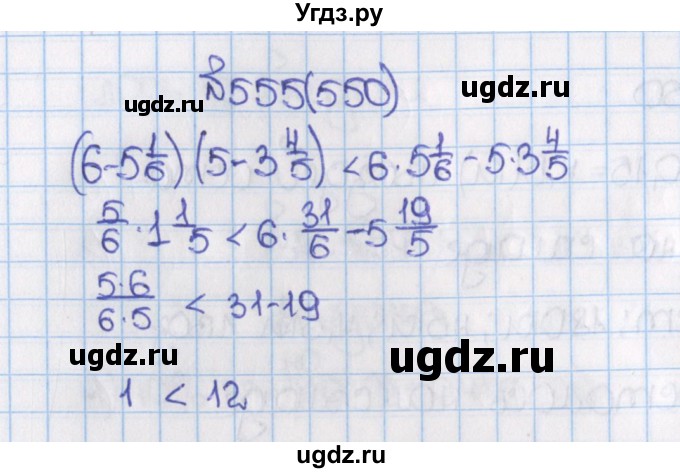 Угдз.ру
№555(550)
ugdz.ru ugdz.ru
(6-5 1/6)(5-3 4/5) < 6·5 1/6 - 5·3 4/5
5/6 · 1 1/5 < 6· 31/6 - 5 19/5
5·6/6·5 < 31-19
ugdz.ru ugdz.ru
1 < 12
ugdz.ru